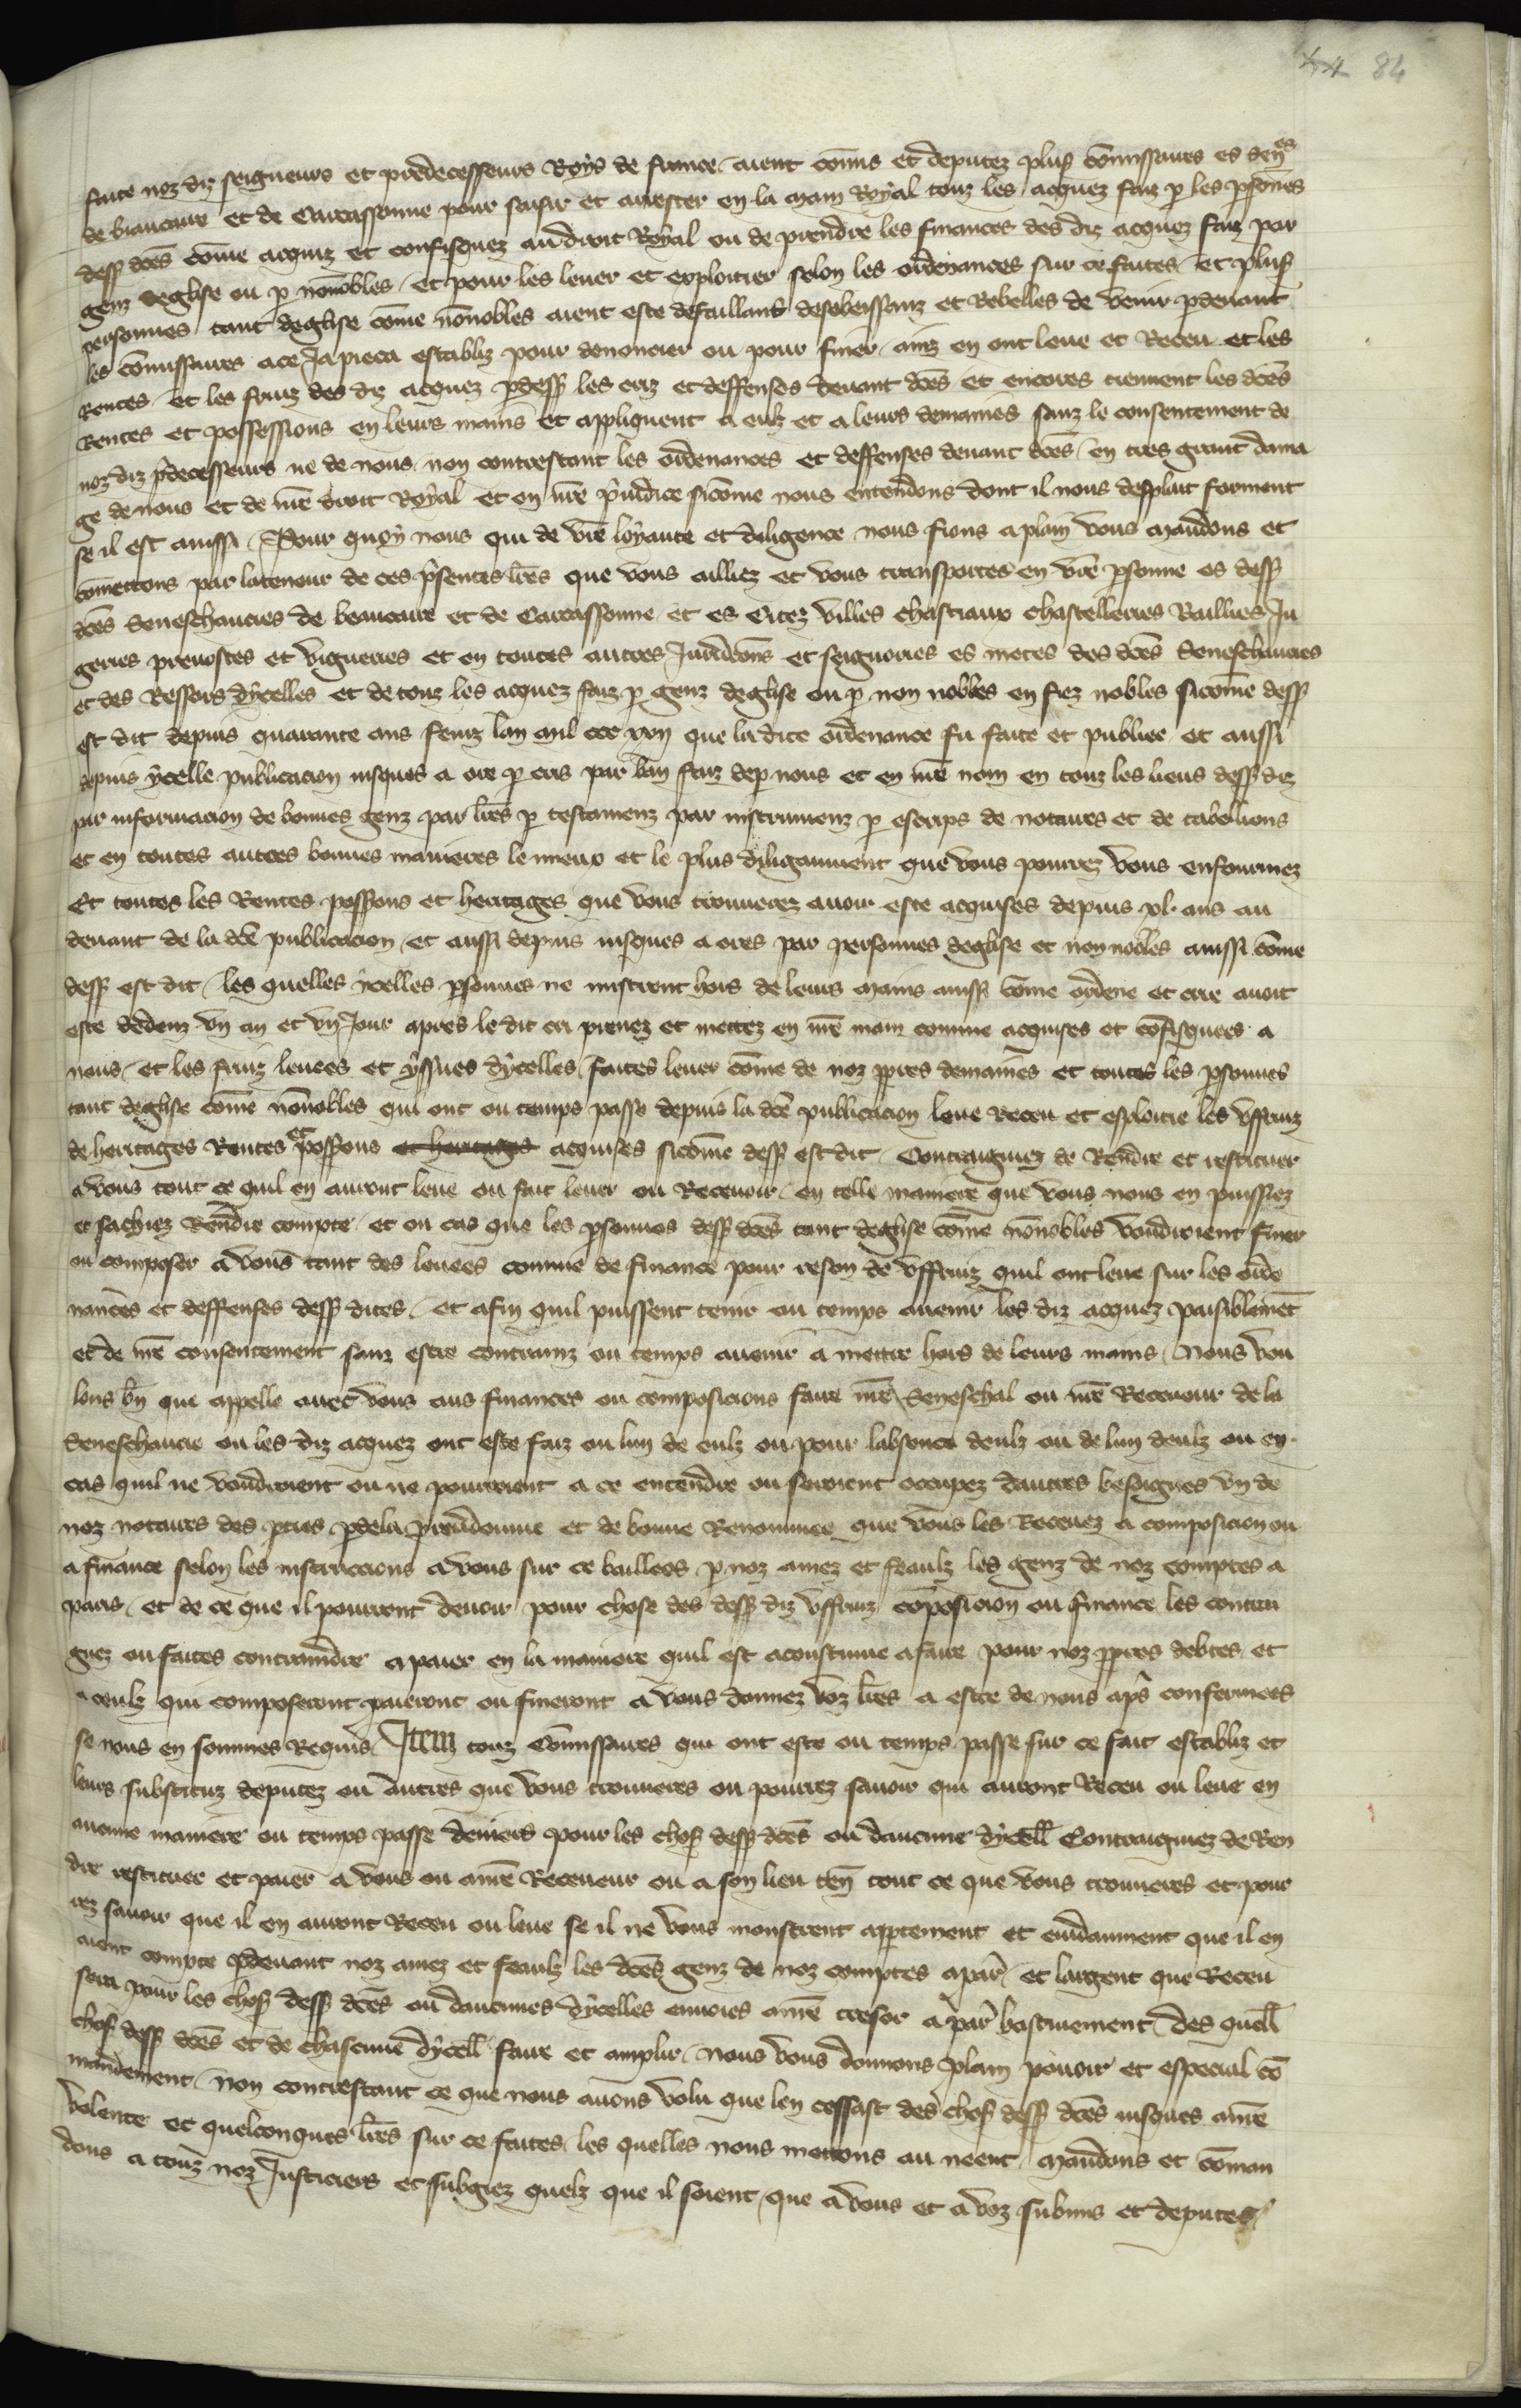 84
faite noz diz seigneurs et predecesseurs Roys de france aient cōmis et deputez plus cōmissaires es sen̄es
de biaucaire et de Carcassonne pour saisir et arrester en la main Royal touz les acquez faiz p les psōnes
dess dc̄es cōme acquiz et confisquez au droit Royal ou de prendre les finances des diz acquez faiz par
genz deglise ou p nōnobles et pour les lever et exploitier selon les ordenances sur ce faites et plus
personnes tant deglise cōme nōnobles aient este defaillanz desobeissanz et Rebelles de venir pdevant
les cōmissaires a ce Ja pieca establiz pour denoncier ou pour finer ainz en ont leve et Receu et les
Rentes et les fruiz des diz acquez pdess les criz et deffenses devant dc̄es et encores tiennent les dc̄es
Rentes et possessions en leurs mains et appliquent a eulz et a leurs demaines sanz le consentement de
noz diz p̄decesseurs ne de nous non contrestant les ordenances et deffenses devant dc̄es en tres grant dama
ge de nous et de n̄re droit Royal et en n̄re p̄iudice sicōme nous entendons dont il nous desplait forment
se il est ainssi Pour quoy nous qui de v̄re loyaute et diligence nous fions a plain vous mandons et
cōmettons par la teneur de ces p̄sentes lr̄es que vous ailliez et vous transportes en v̄re p̄sonne es dess
dc̄es Seneschaucies de beaucaire et de Carcassonne et es Citez villes chastiaux chastelleries Baillies Ju
geries prevostes et vigueries et en toutes autres Juridicōns et seignories es metes des dc̄es Seneschaucies
et des Ressors dycelles et de touz les acquez faiz p genz deglise ou p non nobles en fiez nobles sicōme dess
est dit depuis quarante ans feniz lan mil ccc xxv que la dite ordenance fu faite et publiee et aussi
depuis ycelle publicacion iusques a ore p cris par ban faiz de p nous et en n̄re nom en touz les lieus dess diz
par informacion de bonnes genz par lr̄es p testamenz par instrumenz p escrips de notaires et de tabellions
et en toutes autres bonnes manieres le mieux et le plus diligaument que vous pourrez vous enfourmez
Et toutes les Rentes possions et heritages que vous trouverez avoir este acquises depuis xl. ans au
devant de la dc̄e publicacion et aussi depuis iusques a ores par personnes deglise et non nobles ainssi cōme
dess est dit les quelles ycelles psonnes ne mistrent hors de leurs mains ainssi cōme ordene et crie avoit
este dedenz vn an et vn Jour apres le dit cri prenez et mettez en n̄re main comme acquises et cōfisquees a
nous et les fruiz levees et yssues dycelles faites lever cōme de noz ppres demaines et toutes les psonnes
tant deglise cōme nōnobles qui ont ou temps passe depuis la dc̄e publicacion leve Receu et esploitie les vssfruiz
de heritages Rentes et possions et heritages acquises sicōme dess est dit Contraigniez de Rendre et restituer
a vous tout ce quil en auront leve ou fait lever ou Recevoir en telle maniere que vous nous en puissiez
et sachiez Rendre compte et ou cas que les psonnes dess dc̄es tant deglise cōme nōnobles voudroient finer
ou composer a vous tant des levees comme de finance pour reson de vssfruiz quil ont leve sur les orde
nances et deffenses dess dites et afin quil puissent tenir ou temps avenir les diz acquez paisiblemēt
et de n̄re consentement sanz estre contrainz ou temps avenir a mettre hors de leurs mains Nous vou
lons bn̄ que appelle avec vous aus finances ou composicions faire n̄re Seneschal ou n̄re Receveur de la
Seneschaucie ou les diz acquez ont este faiz ou lun de eulz ou pour labsence deulz ou de lun deulz ou en
cas quil ne voudroient ou ne pourroient a ce entendre ou seroient occupez dautres besoignes vn de
noz notaires des pties p dela preudomme et de bonne Renommee que vous les Recevez a composicion ou
a finance selon les instruccions a vous sur ce baillees p noz amez et feaulz les genz de noz comptes a
paris et de ce que il pourront devoir pour chose des dess diz vssfruiz cōposicion ou finance les contrai
gniez ou faites contraindre a paier en la maniere quil est acoustume a faire pour noz ppres debtes et
a ceulz qui composeront paieront ou fineront a vous donnez voz lr̄es a estre de nous aps confermees
se nous en sommes Requis Item touz Cōmissaires qui ont este ou temps passe sur ce fait establiz et
leurs substituz deputez ou autres que vous trouveres ou pourrez savoir qui auront Receu ou leve en
aucune maniere ou temps passe deniers pour les chos dess dc̄es ou daucune dycell Contraigniez de Ren
dre restituer et paier a vous ou a n̄re Receveur ou a son lieu ten̄ tout ce que vous trouveres et pour
rez savoir que il en auront Receu ou leve se il ne vous monstrent appertement et evidaument que il en
aient compte pdevant noz amez et feaulz les dc̄es genz de noz comptes a par̄ et largent que Receu
sera pour les chos dess dc̄es ou daucunes dycelles envoies a n̄re tresor a par̄ hastivement des quell
chos dess dc̄es et de chascune dycell faire et amplir nous vous donnons plain povoir et especial cō
mandement non contrestant ce que nous avons volu que len cessast des chos dess dc̄es iusques a n̄re
volente et quelconques lr̄es sur ce faites les quelles nous mettons au neent mandons et cōman
dons a touz noz Justiciers et subgiez quelz que il soient que a vous et a voz submis et deputes